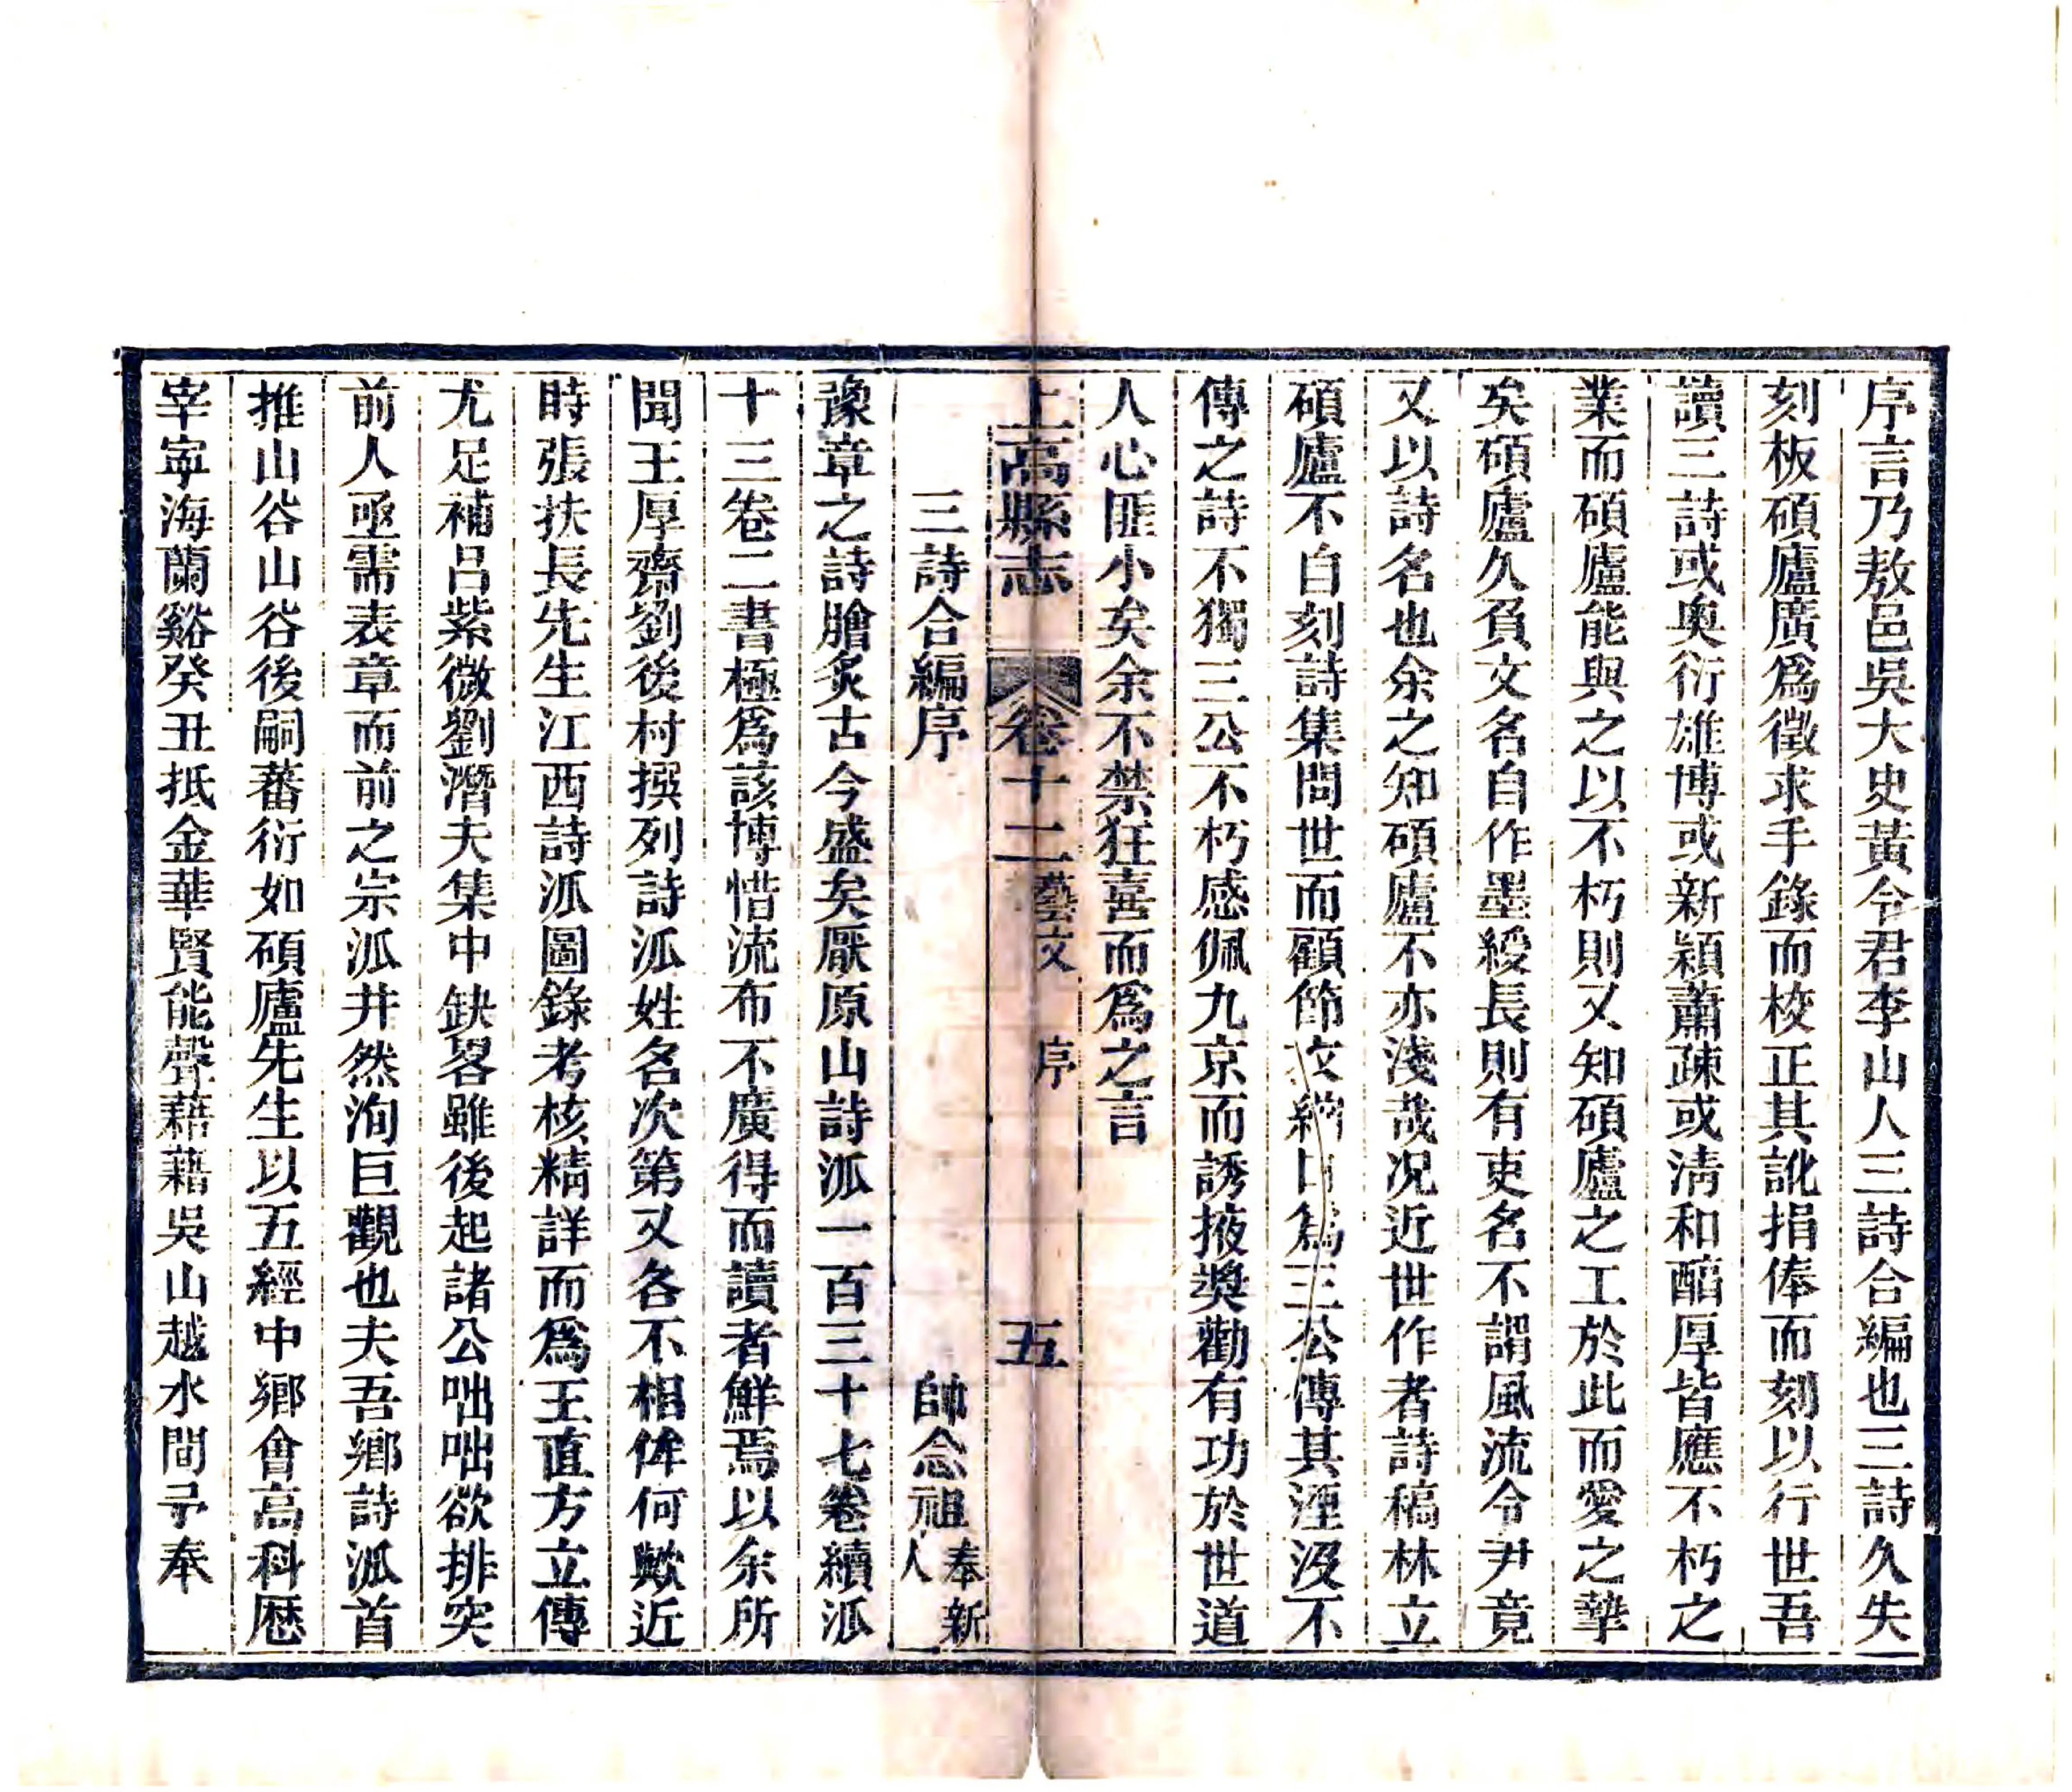 序言乃敖邑吳大史黃令君李山人三詩合編也三詩久失
刻板碩廬廣爲徵求手錄而校正其訛捐俸而刻以行世吾
讀三詩或奧衍雄博或新穎蕭疎或淸和醞厚皆應不朽之
業而碩廬能與之以不朽則又知碩廬之工於此而愛之摯
矣碩廬久負文名自作墨綬長則有吏名不謂風流令尹竟
又以詩名也余之知碩廬不亦淺哉况近世作者詩稿林立
碩廬不自刻詩集問世而顧節衣縮口爲三公傳其湮沒不
傳之詩不獨三公不朽感佩九京而誘掖奬勸有功於世道
人心匪小矣余不禁狂喜而爲之言
上高縣志 卷十二 藝文 序 五
三詩合編序 帥念祖 奉新人
豫章之詩膾炙古今盛矣厭原山詩派一百三十七卷續派
十三卷二書極爲該博惜流布不廣得而讀者鮮焉以余所
聞王厚齋劉後村撰列詩派姓名次第又各不相侔何歟近
時張扶長先生江西詩派圖錄考核精詳而爲王直方立傳
尤足補呂紫微劉潛夫集中缺畧雖後起諸公咄咄欲排突
前人亟需表章而前之宗派井然洵巨觀也夫吾鄉詩派首
推山谷山谷後嗣蕃衍如碩廬先生以五經中鄉會高科歷
宰寧海蘭谿癸丑抵金華賢能聲藉藉吳山越水間予奉